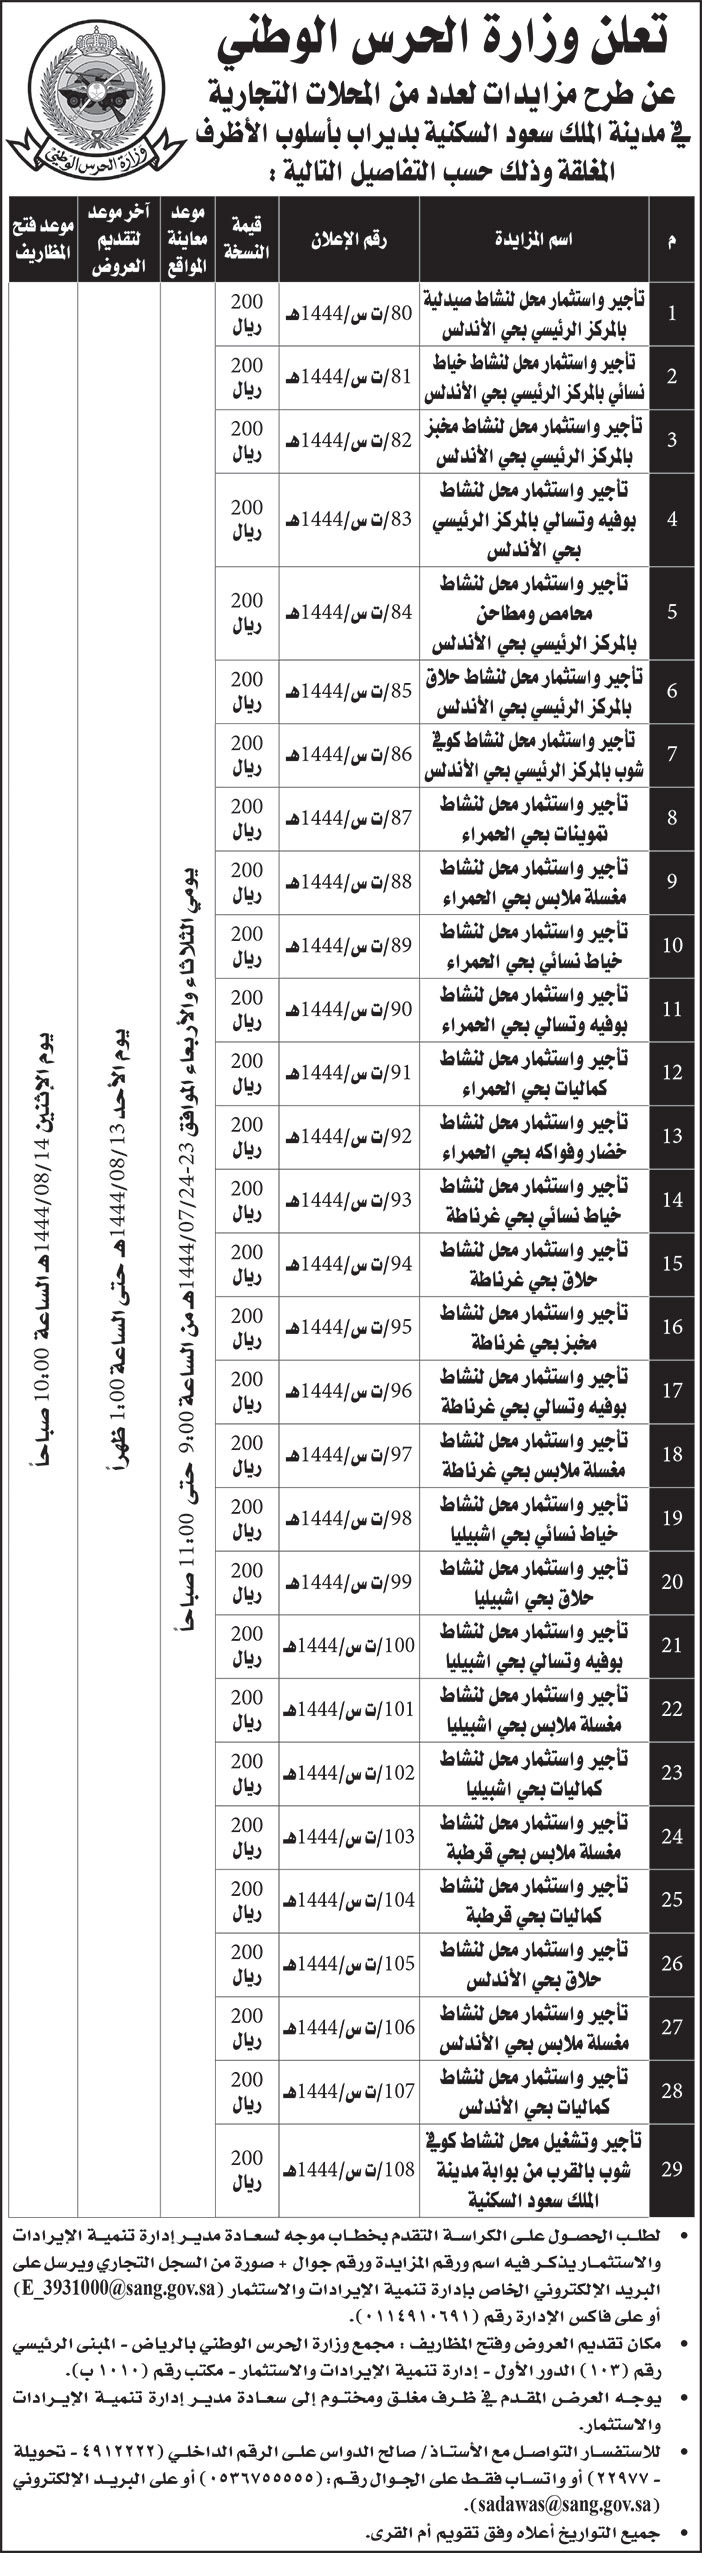 وزارة الحرس الوطني
تعلن وزارة الحرس الوطني
عن طرح مزايدات لعدد من المحلات التجارية
في مدينة الملك سعود السكنية بديراب بأسلوب الأظرف
المغلقة وذلك حسب التفاصيل التالية :
م
اسم المزايدة
رقم الإعلان
قيمة
النسخة
موعد
معاينة
المواقع
آخر موعد
لتقديم
العروض
موعد فتح
المظاريف
1
تأجير واستثمار محل لنشاط صيدلية
بالمركز الرئيسي بحي الأندلس
80/ت س/1444هـ
200
ريال
2
تأجير واستثمار محل لنشاط خياط
نسائي بالمركز الرئيسي بحي الأندلس
81/ت س/1444هـ
200
ريال
3
تأجير واستثمار محل لنشاط مخبز
بالمركز الرئيسي بحي الأندلس
82/ت س/1444هـ
200
ريال
4
تأجير واستثمار محل لنشاط
بوفيه وتسالي بالمركز الرئيسي
بحي الأندلس
83/ت س/1444هـ
200
ريال
5
تأجير واستثمار محل لنشاط
محامص ومطاحن
بالمركز الرئيسي بحي الأندلس
84/ت س/1444هـ
200
ريال
6
تأجير واستثمار محل لنشاط حلاق
بالمركز الرئيسي بحي الأندلس
85/ت س/1444هـ
200
ريال
7
تأجير واستثمار محل لنشاط كوفي
شوب بالمركز الرئيسي بحي الأندلس
86/ت س/1444هـ
200
ريال
8
تأجير واستثمار محل لنشاط
تموينات بحي الحمراء
87/ت س/1444هـ
200
ريال
9
تأجير واستثمار محل لنشاط
مغسلة ملابس بحي الحمراء
88/ت س/1444هـ
200
ريال
10
تأجير واستثمار محل لنشاط
خياط نسائي بحي الحمراء
89/ت س/1444هـ
200
ريال
11
تأجير واستثمار محل لنشاط
بوفيه وتسالي بحي الحمراء
90/ت س/1444هـ
200
ريال
12
تأجير واستثمار محل لنشاط
كماليات بحي الحمراء
91/ت س/1444هـ
200
ريال
13
تأجير واستثمار محل لنشاط
خضار وفواكه بحي الحمراء
92/ت س/1444هـ
200
ريال
14
تأجير واستثمار محل لنشاط
خياط نسائي بحي غرناطة
93/ت س/1444هـ
200
ريال
15
تأجير واستثمار محل لنشاط
حلاق بحي غرناطة
94/ت س/1444هـ
200
ريال
16
تأجير واستثمار محل لنشاط
مخبز بحي غرناطة
95/ت س/1444هـ
200
ريال
17
تأجير واستثمار محل لنشاط
بوفيه وتسالي بحي غرناطة
96/ت س/1444هـ
200
ريال
18
تأجير واستثمار محل لنشاط
مغسلة ملابس بحي غرناطة
97/ت س/1444هـ
200
ريال
19
تأجير واستثمار محل لنشاط
خياط نسائي بحي اشبيليا
98/ت س/1444هـ
200
ريال
20
تأجير واستثمار محل لنشاط
حلاق بحي اشبيليا
99/ت س/1444هـ
200
ريال
21
تأجير واستثمار محل لنشاط
بوفيه وتسالي بحي اشبيليا
100/ت س/1444هـ
200
ريال
22
تأجير واستثمار محل لنشاط
مغسلة ملابس بحي اشبيليا
101/ت س/1444هـ
200
ريال
23
تأجير واستثمار محل لنشاط
كماليات بحي اشبيليا
102/ت س/1444هـ
200
ريال
24
تأجير واستثمار محل لنشاط
مغسلة ملابس بحي قرطبة
103/ت س/1444هـ
200
ريال
25
تأجير واستثمار محل لنشاط
كماليات بحي قرطبة
104/ت س/1444هـ
200
ريال
26
تأجير واستثمار محل لنشاط
حلاق بحي الأندلس
105/ت س/1444هـ
200
ريال
27
تأجير واستثمار محل لنشاط
مغسلة ملابس بحي الأندلس
106/ت س/1444هـ
200
ريال
28
تأجير واستثمار محل لنشاط
كماليات بحي الأندلس
107/ت س/1444هـ
200
ريال
29
تأجير وتشغيل محل لنشاط كوفي
شوب بالقرب من بوابة مدينة
الملك سعود السكنية
108/ت س/1444هـ
200
ريال
يومي الثلاثاء والأربعاء الموافق 23-24/07/1444هـ من الساعة 9:00 حتى 11:00 صباحاً
يوم الأحد 1444/08/13هـ حتى الساعة 1:00 ظهراً
يوم الإثنين 1444/08/14هـ الساعة 10:00 صباحاً
• لطلب الحصول على الكراسة التقدم بخطاب موجه لسعادة مدير إدارة تنمية الإيرادات
والاستثمار يذكر فيه اسم ورقم المزايدة ورقم جوال + صورة من السجل التجاري ويرسل على
البريد الإلكتروني الخاص بإدارة تنمية الإيرادات والاستثمار (E_3931000@sang.gov.sa)
أو على فاكس الإدارة رقم (٠١١٤٩١٠٦٩١).
• مكان تقديم العروض وفتح المظاريف : مجمع وزارة الحرس الوطني بالرياض - المبنى الرئيسي
رقم (١٠٣) الدور الأول - إدارة تنمية الإيرادات والاستثمار - مكتب رقم (١٠١٠ ب).
• يوجه العرض المقدم في ظرف مغلق ومختوم إلى سعادة مدير إدارة تنمية الإيرادات
والاستثمار.
• للاستفسار التواصل مع الأستاذ/ صالح الدواس على الرقم الداخلي (٤٩١٢٢٢٢ - تحويلة
- ٢٢٩٧٧) أو واتساب فقط على الجوال رقم: (٠٥٣٦٧٥٥٥٥٥) أو على البريد الإلكتروني
(sadawas@sang.gov.sa).
• جميع التواريخ أعلاه وفق تقويم أم القرى.